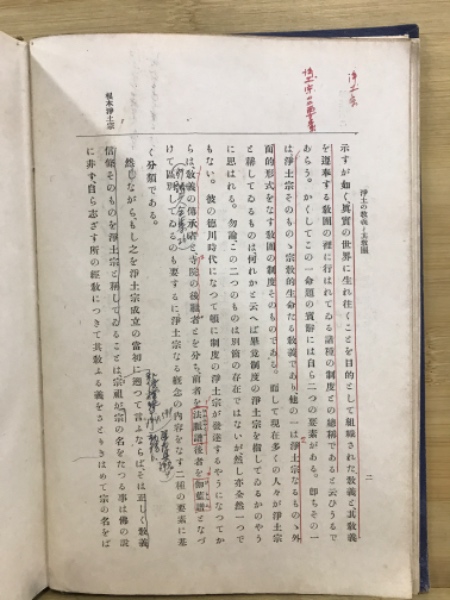 浄土宗
浄土の教義と其教團
二
示すが如く眞實の世界に生れ往くことを目的として組織された教義と、其教義
を遵奉する教團の裡に行はれてゐる諸種の制度との總稱であると云ひうるで
あらう。かくしてこの一命題の賓辭には自ら二つの要素がある。卽ちその一
は淨土宗そのものゝ宗教的生命たる教義であり、他の一は淨土宗なるものゝ外
面的形式をなす教團の制度そのものである。而して現在多くの人々が淨土宗
と稱してゐるものは何れかと云へば畢竟制度の淨土宗を指してゐるかのやう
に思はれる。勿論、この二つのものは別箇の存在ではないが、然し亦全然一つで
もない。彼の德川時代になつて頓に制度の淨土宗が發達するやうになつてか
らは、教義の傳承者と寺院の後繼者とを分ち、前者を法脈譜後者を伽藍譜となづ
けて區別してゐるのも要するに淨土宗なる概念の内容をなす二種の要素に基
く分類である。
然しながら、もし之を淨土宗成立の當初に遡つて言ふならば、それは正しく教義
信仰そのものを淨土宗と稱してゐることは、宗祖が「宗の名をたつる事は佛の説
に非ず、自ら志ざす所の經教につきて其教ふる義をさとりきはめて宗の名をば
根本淨土宗